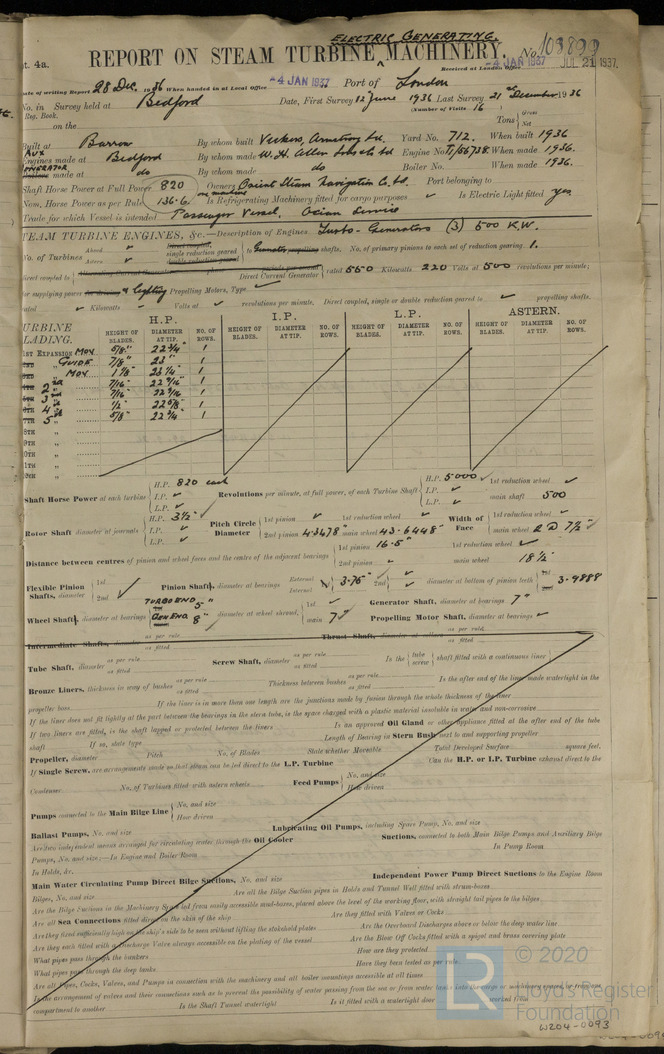 ELECTRIC GENERATING.
pt. 4a. REPORT ON STEAM TURBINE MACHINERY. No. 103899
-4 JAN 1937 JUL 21 1937
Received at London Office
Date of writing Report 28 Dec. 1936 When handed in at Local Office -4 JAN 1937 Port of London
No. in Survey held at Bedford Date, First Survey 12 June 1936 Last Survey 21 December 1936
Reg. Book. (Number of Visits 16)
on the Tons Gross Net
Built at Barrow By whom built Vickers, Armstrong Ltd. Yard No. 712. When built 1936
Aux Engines made at Bedford By whom made W. H. Allen Sons & Co Ltd Engine No. T1/55738. When made 1936.
Generator made at do By whom made do Boiler No. When made 1936.
Shaft Horse Power at Full Power 820 Owners Orient Steam Navigation Co. Ltd. Port belonging to
Nom. Horse Power as per Rule 136.6. Is Refrigerating Machinery fitted for cargo purposes Is Electric Light fitted yes.
Trade for which Vessel is intended Passenger Vessel, Ocean Service
STEAM TURBINE ENGINES, &c.—Description of Engines Turbo-Generators (3) 500 K.W.
No. of Turbines Ahead Astern Direct coupled, single reduction geared double reduction geared to Generator propelling shafts. No. of primary pinions to each set of reduction gearing 1.
direct coupled to Alternating Current Generator Direct Current Generator rated 550 Kilowatts 220 Volts at 500 revolutions per minute;
for supplying power for driving & Lighting Propelling Motors, Type
rated Kilowatts Volts at revolutions per minute. Direct coupled, single or double reduction geared to propelling shafts.
TURBINE BLADING. H.P. I.P. L.P. ASTERN.
HEIGHT OF BLADES. DIAMETER AT TIP. NO. OF ROWS. HEIGHT OF BLADES. DIAMETER AT TIP. NO. OF ROWS. HEIGHT OF BLADES. DIAMETER AT TIP. NO. OF ROWS. HEIGHT OF BLADES. DIAMETER AT TIP. NO. OF ROWS.
1ST EXPANSION MOV 5/8" 22 3/4" 1
GUIDE 7/8" 23" 1
MOV 1 1/8" 23 1/4" 1
2nd 7/16" 22 9/16" 1
3rd 7/16" 22 9/16" 1
4th 1/2" 22 5/8" 1
5th 5/8" 22 3/4 1
Shaft Horse Power at each turbine H.P. 820 each I.P. L.P. Revolutions per minute, at full power, of each Turbine Shaft H.P. 5000 I.P. L.P. 1st reduction wheel main shaft 500
Rotor Shaft diameter at journals H.P. 3½" I.P. L.P. Pitch Circle Diameter 1st pinion 2nd pinion 4.3478" 1st reduction wheel main wheel 43.6448" Width of Face 1st reduction wheel main wheel 2 @ 7½"
Distance between centres of pinion and wheel faces and the centre of the adjacent bearings 1st pinion 16.5" 2nd pinion 1st reduction wheel main wheel 18½"
Flexible Pinion Shafts, diameter 1st 2nd Pinion Shafts, diameter at bearings External Internal 1st 3.75" 2nd diameter at bottom of pinion teeth 1st 2nd 3.9888
Wheel Shafts, diameter at bearings TURBO END 5" GEN END 8" diameter at wheel shroud, 1st main 7" Generator Shaft, diameter at bearings 7" Propelling Motor Shaft, diameter at bearings
Intermediate Shafts, diameter as per rule as fitted Thrust Shaft, diameter at collars as per rule as fitted
Tube Shaft, diameter as per rule as fitted Screw Shaft, diameter as per rule as fitted Is the tube screw shaft fitted with a continuous liner
Bronze Liners, thickness in way of bushes as per rule as fitted Thickness between bushes as per rule as fitted Is the after end of the liner made watertight in the
propeller boss If the liner is in more than one length are the junctions made by fusion through the whole thickness of the liner
If the liner does not fit tightly at the part between the bearings in the stern tube, is the space charged with a plastic material insoluble in water and non-corrosive
If two liners are fitted, is the shaft lapped or protected between the liners Is an approved Oil Gland or other appliance fitted at the after end of the tube
shaft If so, state type Length of Bearing in Stern Bush next to and supporting propeller
Propeller, diameter Pitch No. of Blades State whether Moveable Total Developed Surface square feet.
If Single Screw, are arrangements made so that steam can be led direct to the L.P. Turbine Can the H.P. or I.P. Turbine exhaust direct to the
Condenser No. of Turbines fitted with astern wheels Feed Pumps No. and size How driven
Pumps connected to the Main Bilge Line No. and size How driven
Ballast Pumps, No. and size Lubricating Oil Pumps, including Spare Pump, No. and size
Are two independent means arranged for circulating water through the Oil Cooler Suctions, connected to both Main Bilge Pumps and Auxiliary Bilge
Pumps, No. and size:—In Engine and Boiler Room In Pump Room
In Holds, &c.
Main Water Circulating Pump Direct Bilge Suctions, No. and size Independent Power Pump Direct Suctions to the Engine Room
Bilges, No. and size Are all the Bilge Suction pipes in Holds and Tunnel Well fitted with strum-boxes
Are the Bilge Suctions in the Machinery Space led from easily accessible mud-boxes, placed above the level of the working floor, with straight tail pipes to the bilges
Are all Sea Connections fitted direct on the skin of the ship Are they fitted with Valves or Cocks
Are they fixed sufficiently high on the ship's side to be seen without lifting the stokehold plates Are the Overboard Discharges above or below the deep water line
Are they each fitted with a Discharge Valve always accessible on the plating of the vessel Are the Blow Off Cocks fitted with a spigot and brass covering plate
What pipes pass through the bunkers How are they protected
What pipes pass through the deep tanks Have they been tested as per rule
Are all Pipes, Cocks, Valves, and Pumps in connection with the machinery and all boiler mountings accessible at all times
Is the arrangement of valves and their connections such as to prevent the possibility of water passing from the sea or from water tanks into the cargo or machinery spaces, or from one
compartment to another Is the Shaft Tunnel watertight Is it fitted with a watertight door worked from
© 2020
LR Lloyd's Register
Foundation
W204-0093